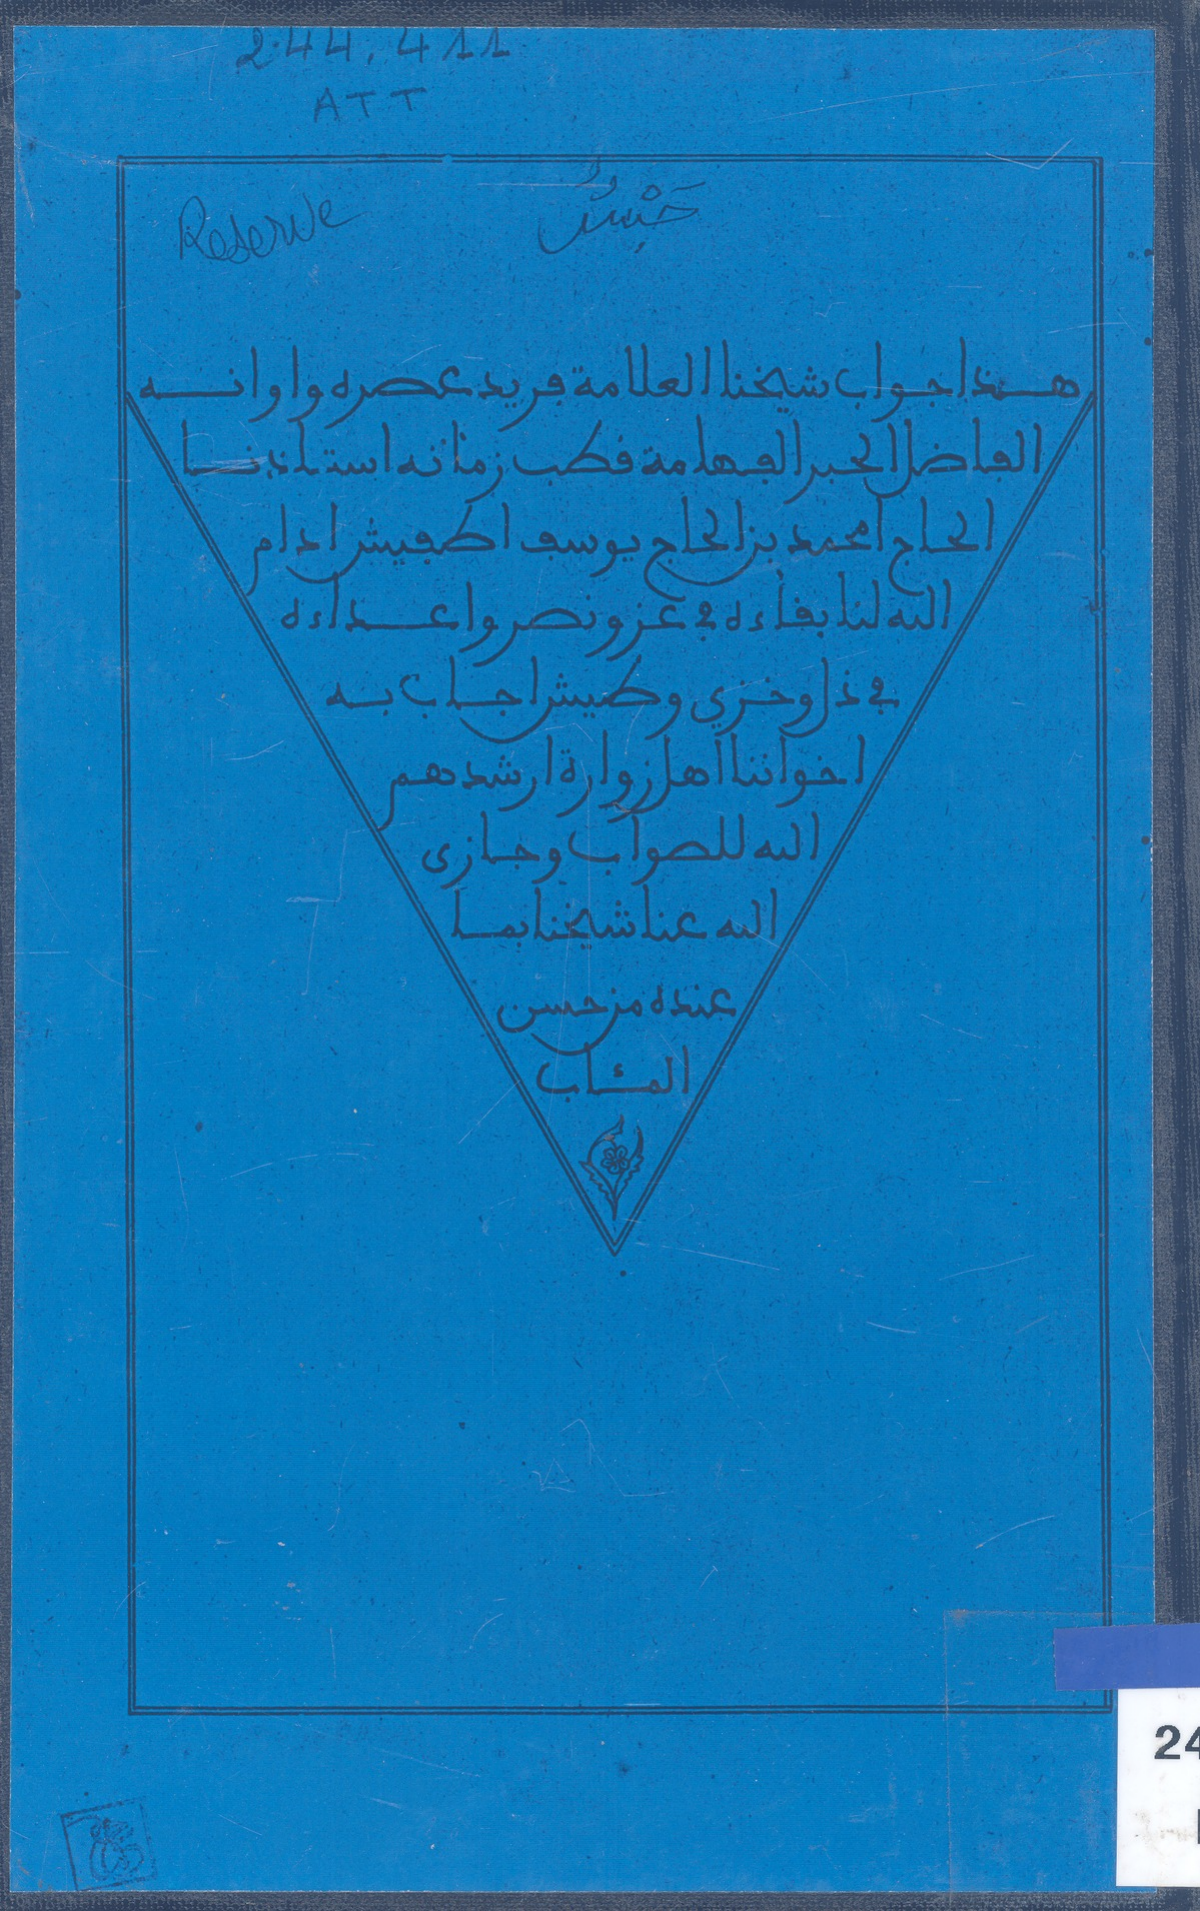 244.411
ATT
Reserve
حَبْسٌ
هذا جواب شيخنا العلامة فريد عصره واوانه
الفاضل الحبر الفهامة قطب زمانه استاذنا
الحاج امحمد بن الحاج يوسف اطفيش ادام
الله لنا بقاءه في عز ونصر واعداءه
في ذل وخزي وطيش اجاب به
اخواننا اهل زوارة ارشدهم
الله للصواب وجازى
الله عنا شيخنا بما
عنده من حسن
المئاب
24